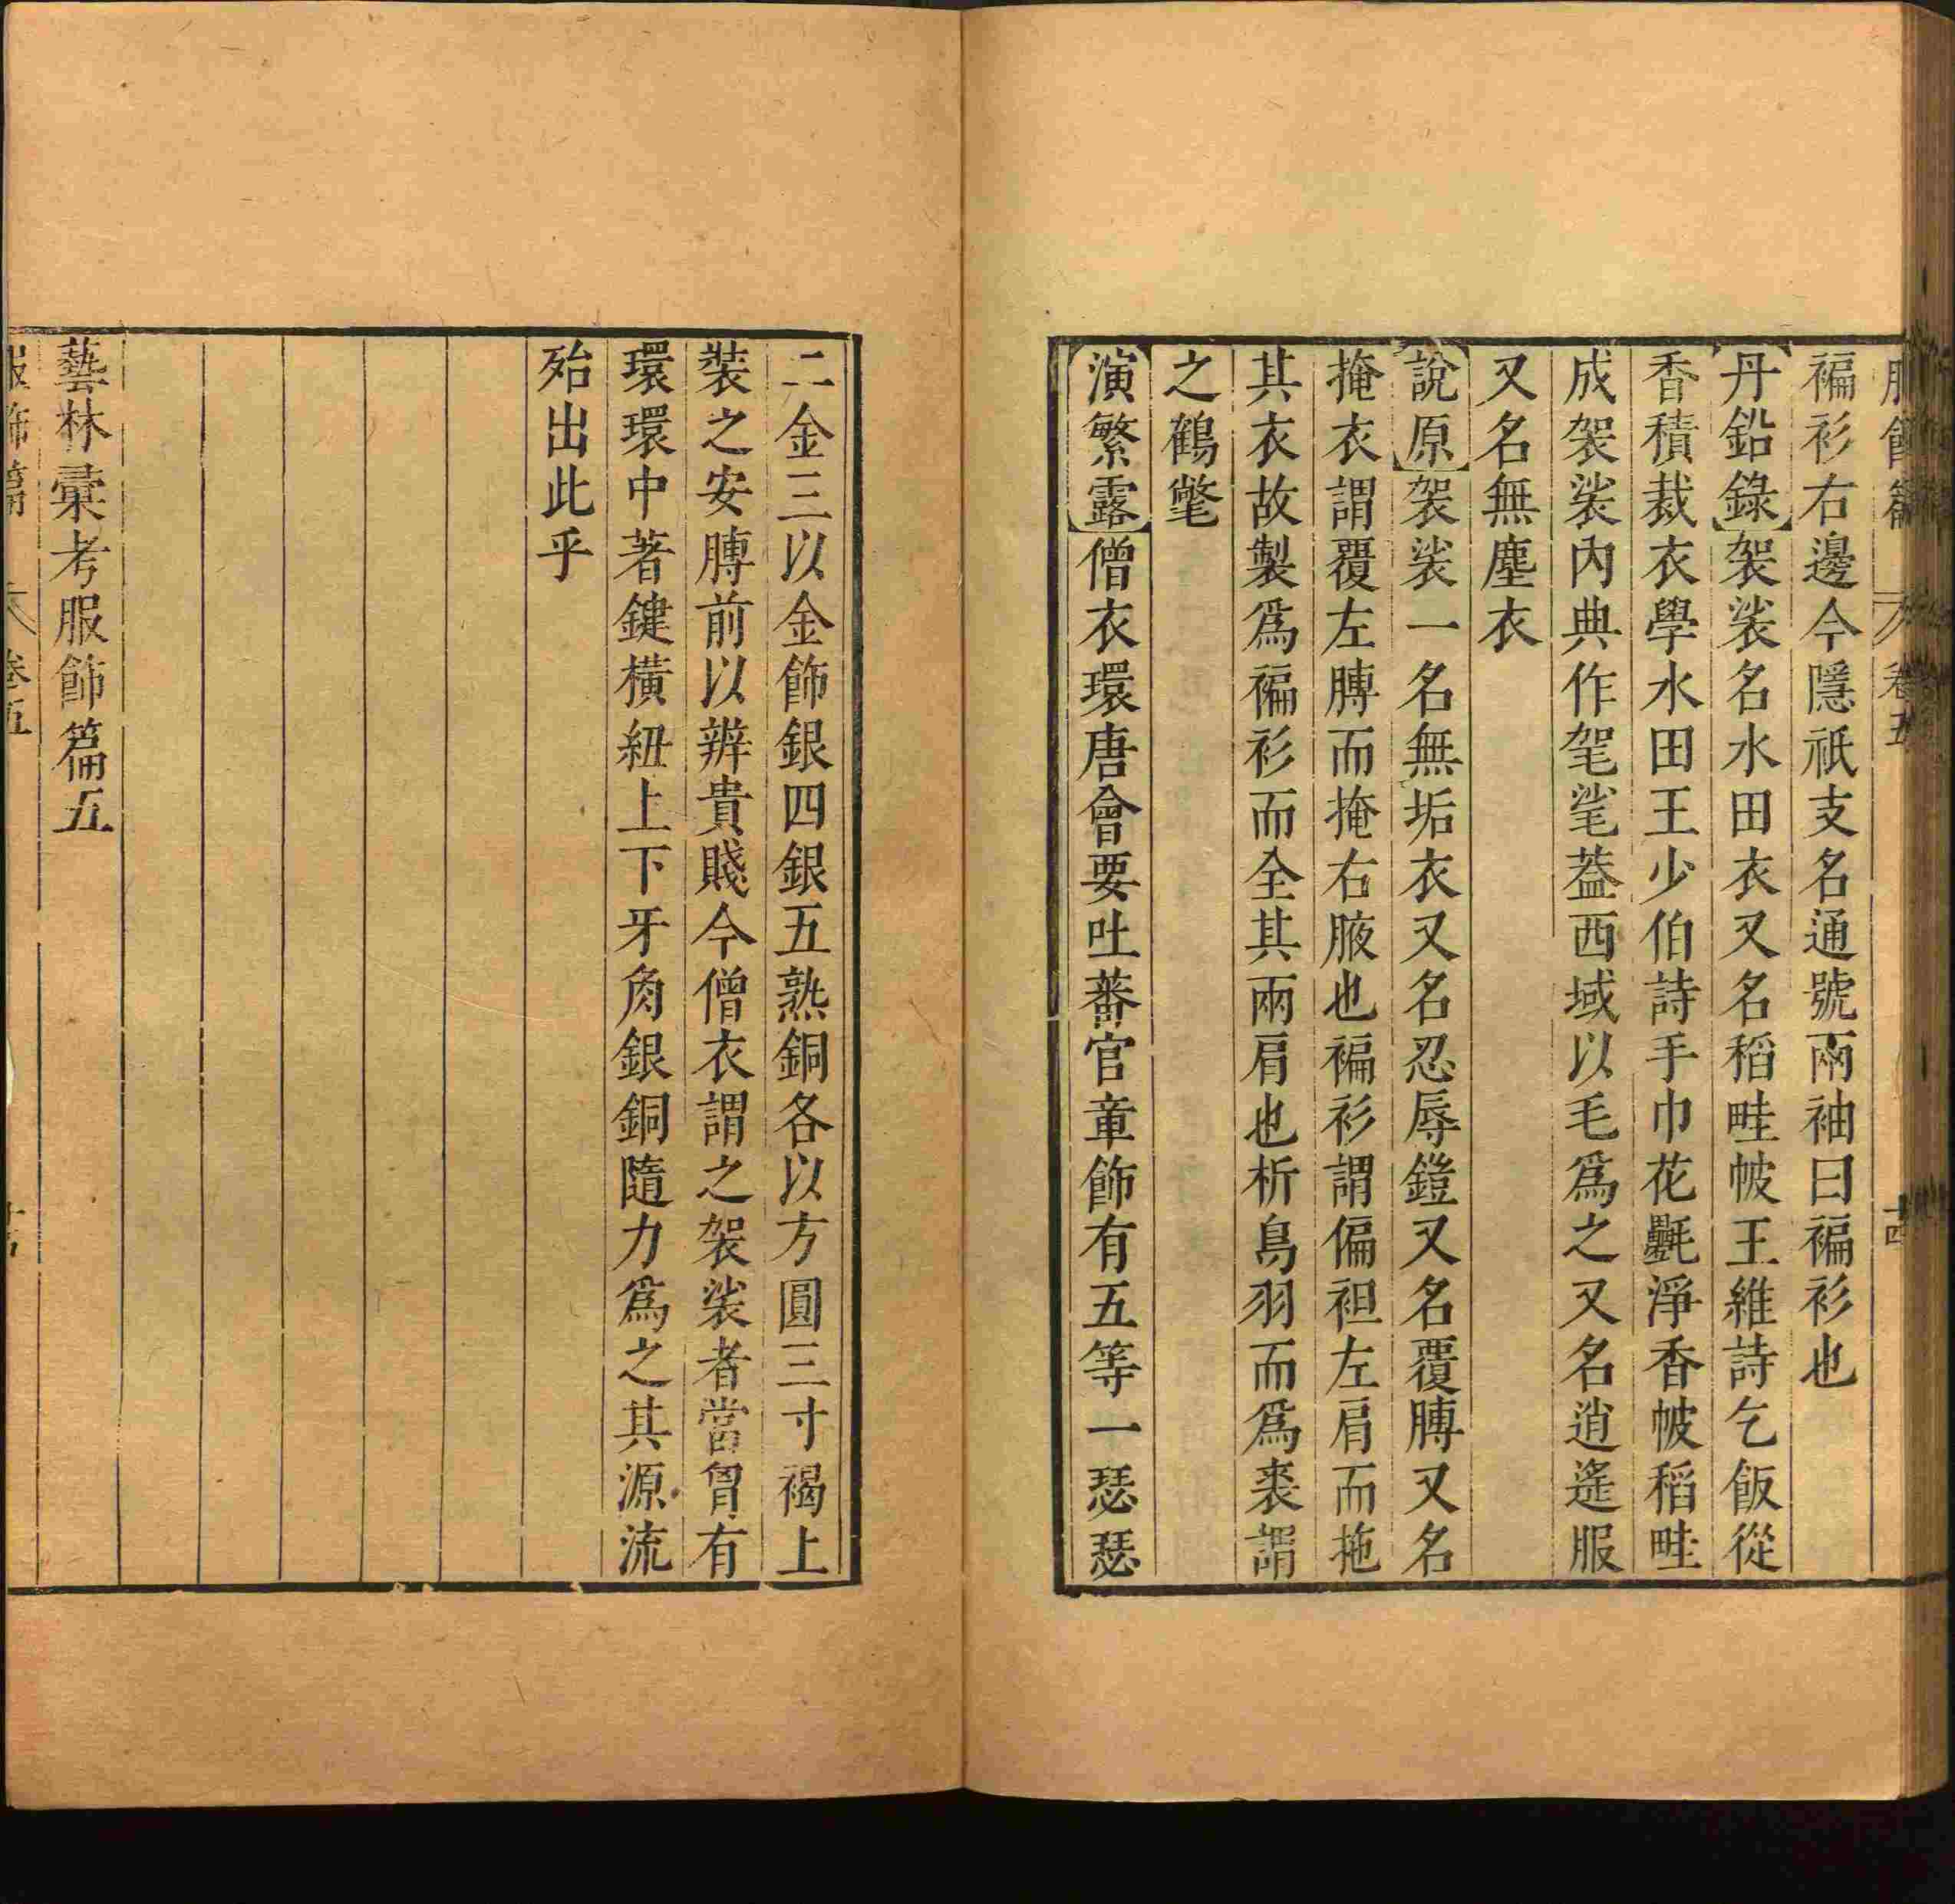 服飾篇 卷五 十四
褊衫右邊今隱祇支名通號兩袖曰褊衫也
【丹鉛錄】袈裟名水田衣又名稻畦帔王維詩乞飯從
香積裁衣學水田王少伯詩手巾花㲲淨香帔稻畦
成袈裟內典作毠㲚葢西域以毛爲之又名逍遙服
又名無塵衣
【說原】袈裟一名無垢衣又名忍辱鎧又名覆膊又名
掩衣謂覆左膊而掩右腋也褊衫謂偏袒左肩而拖
其衣故製爲褊衫而全其兩肩也析鳥羽而爲裘謂
之鶴氅
【演繁露】僧衣環唐會要吐蕃官章飾有五等一瑟瑟
二金三以金飾銀四銀五熟銅各以方圓三寸褐上
裝之安膊前以辨貴賤今僧衣謂之袈裟者當胷有
環環中著鍵橫紐上下牙角銀銅隨力爲之其源流
殆出此乎
藝林彙考服飾篇五
服飾篇 卷五